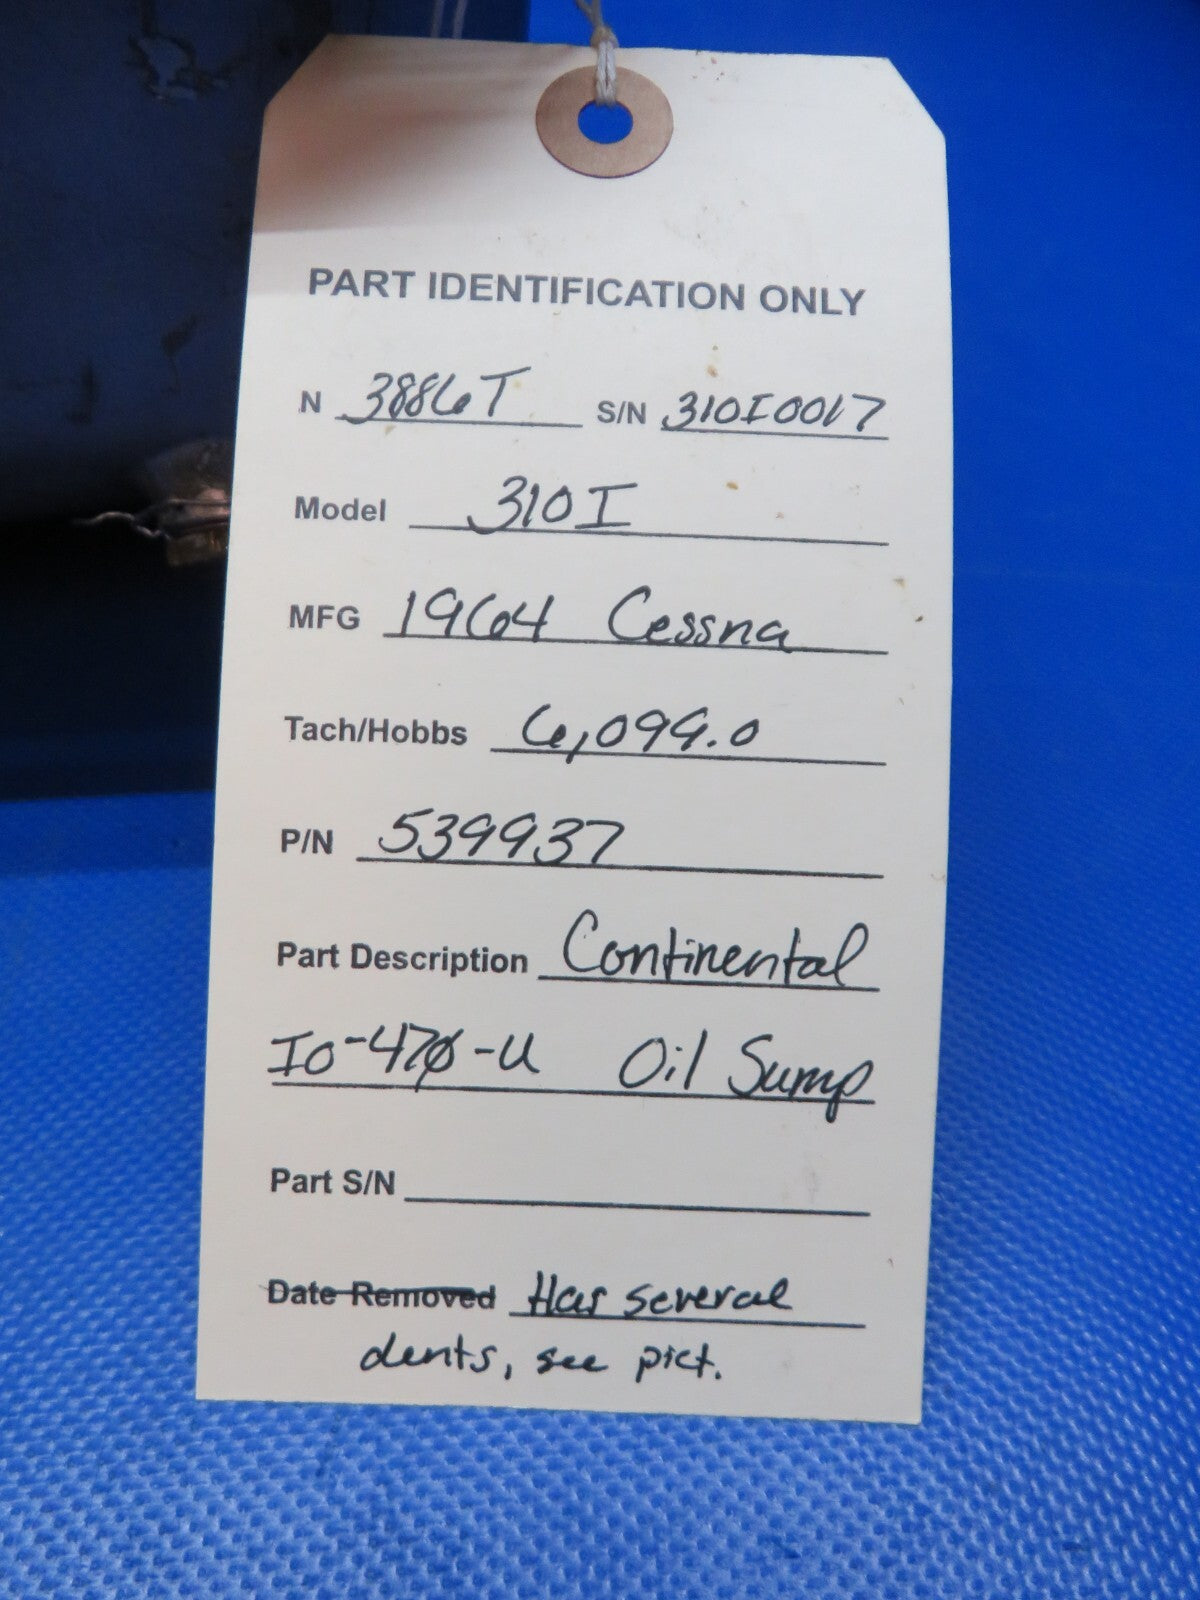 PART IDENTIFICATION ONLY
N 3886T S/N 310I0017
Model 310I
MFG 1964 Cessna
Tach/Hobbs 6,099.0
P/N 539937
Part Description Continental
IO-470-U Oil Sump
Part S/N
Date Removed Has several
dents, see pict.